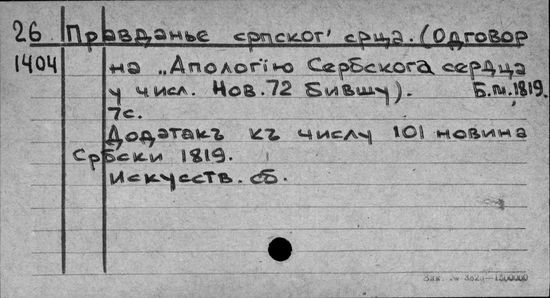 26 Правданье српског' срца. (Одговор
1404 на „Апологію Сербскога сердца
у числ. Нов. 72 бившу). Б.м. 1819.
7с.
Додатакъ къ числу 101 новина
Србски 1819.
Искусств. сб.
Зак.